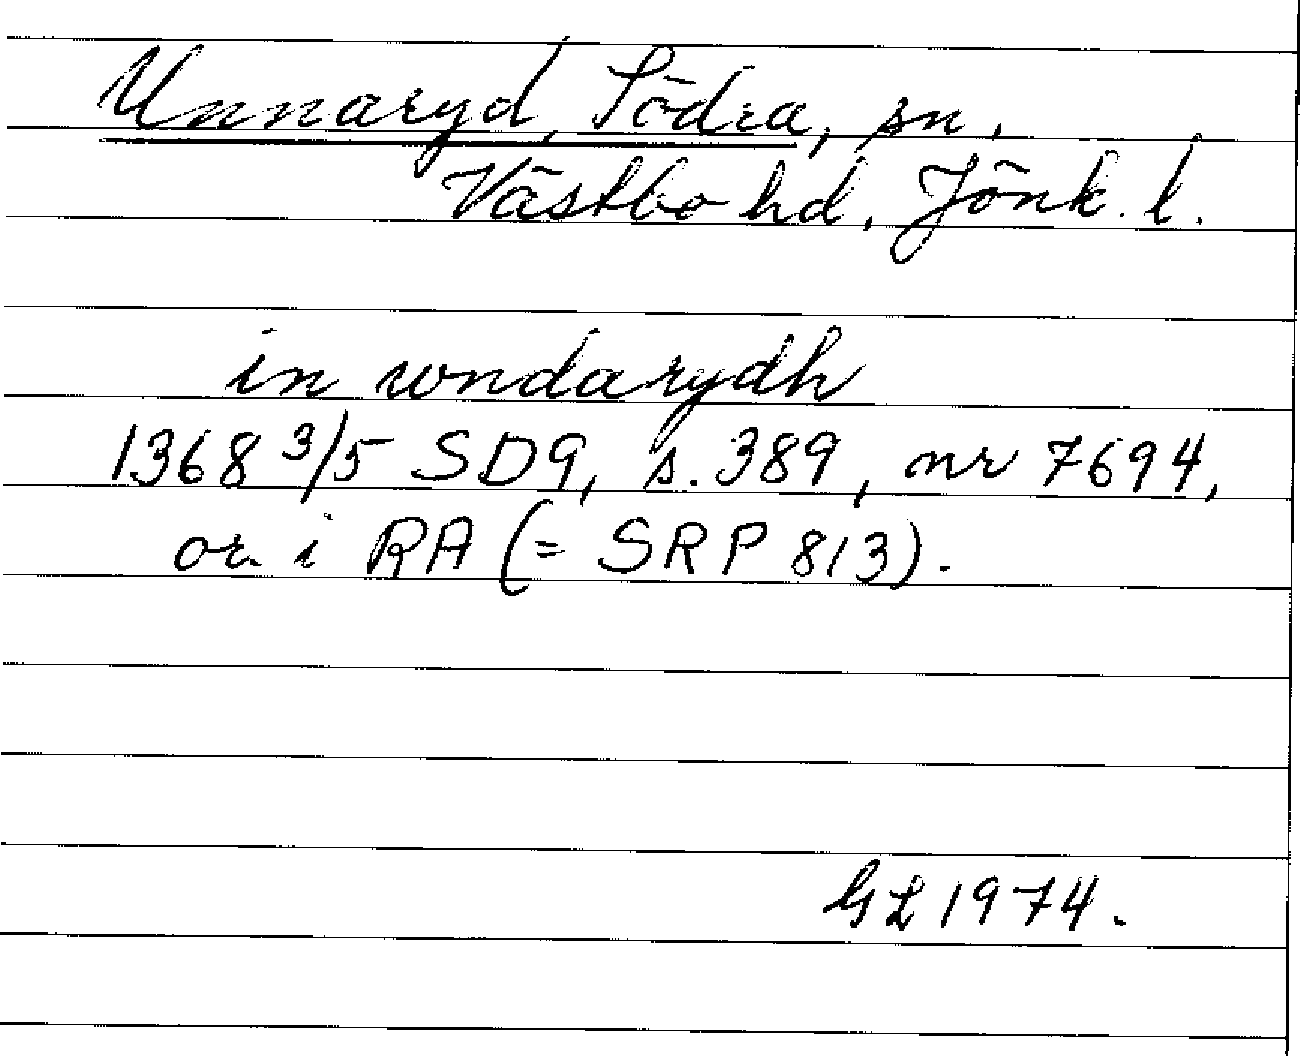 Unnaryd, Södra, sn,
Västbo hd, Jönk. l.
in wndarydh
1368 3/5 SD9, s. 389, nr 7694,
or. i RA (= SRP 813).
GL 1974.